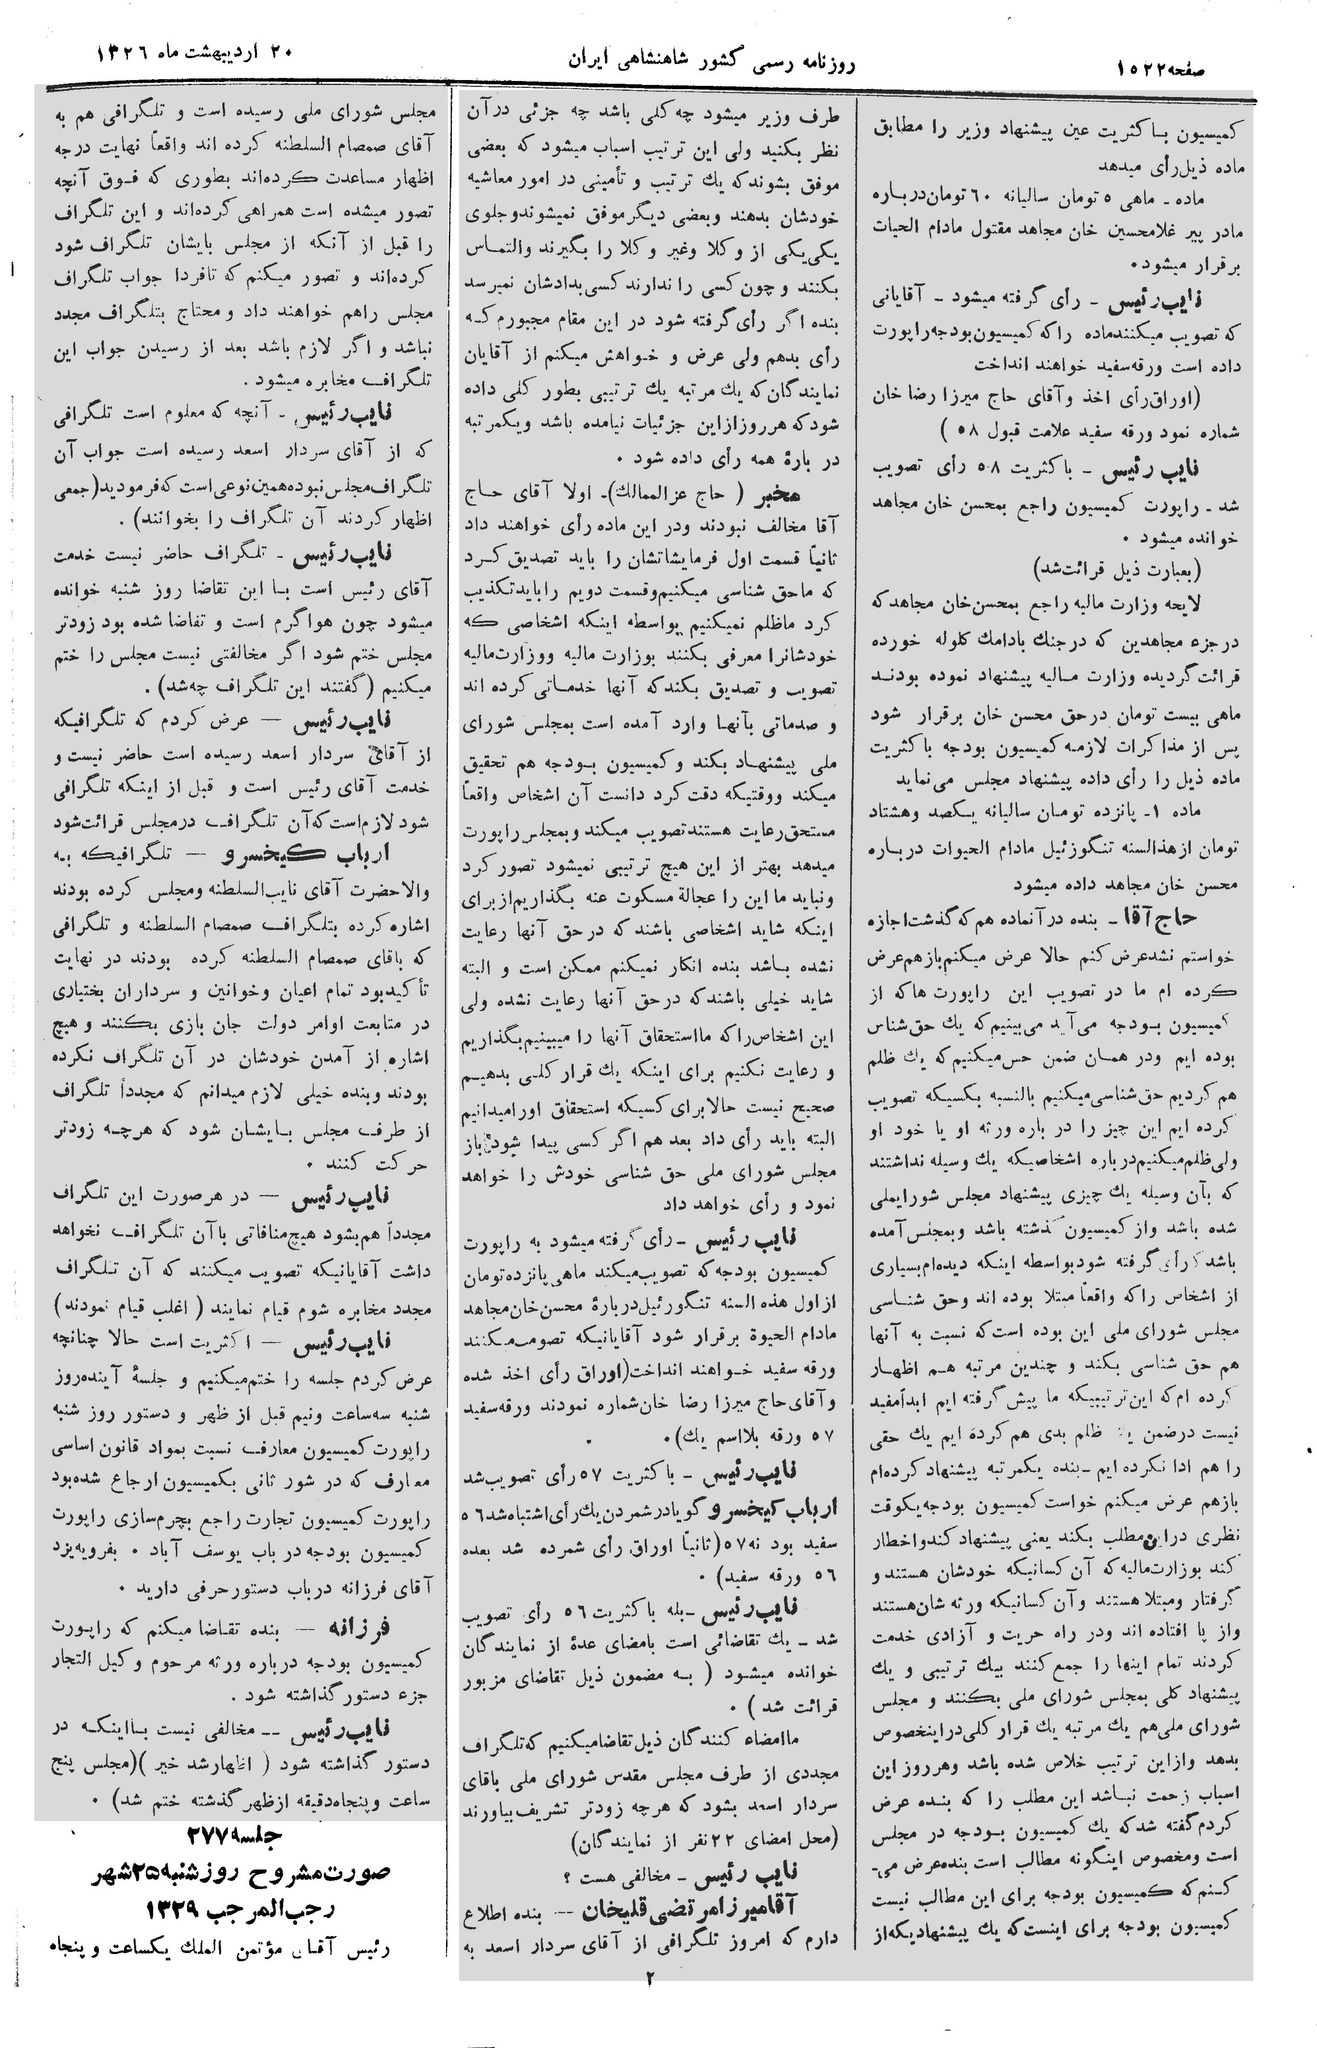 صفحه ۱۵۲۲
روزنامه رسمی کشور شاهنشاهی ایران
۲۰ اردیبهشت ماه ۱۳۲۶
کمیسیون باکثریت عین پیشنهاد وزیر را مطابق
ماده ذیل رأی میدهد
ماده - ماهی ۵ تومان سالیانه ۶۰ تومان درباره
مادر پیر غلامحسین خان مجاهد مقتول مادام الحیات
برقرار میشود.
نایب رئیس - رأی گرفته میشود - آقایانی
که تصویب میکنند ماده را که کمیسیون بودجه راپورت
داده است ورقه سفید خواهند انداخت
(اوراق رأی اخذ و آقای حاج میرزا رضا خان
شماره نمود ورقه سفید علامت قبول ۵۸ )
نایب رئیس - باکثریت ۵۸ رأی تصویب
شد - راپورت کمیسیون راجع بمحسن خان مجاهد
خوانده میشود .
(بعبارت ذیل قرائت شد)
لایحه وزارت مالیه راجع بمحسن خان مجاهد که
در جزء مجاهدین که در جنك بادامك گلوله خورده
قرائت گردیده وزارت مالیه پیشنهاد نموده بودند
ماهی بیست تومان در حق محسن خان برقرار شود
پس از مذاکرات لازمه کمیسیون بودجه باکثریت
ماده ذیل را رأی داده پیشنهاد مجلس می نماید
ماده ۱- پانزده تومان سالیانه یکصد و هشتاد
تومان از هذالسنه تنگوزئیل مادام الحیوات درباره
محسن خان مجاهد داده میشود
حاج آقا - بنده در آنماده هم که گذشت اجازه
خواستم نشد عرض کنم حالا عرض میکنم باز هم عرض
کرده ام ما در تصویب این راپورت ها که از
کمیسیون بودجه می آید می بینیم که یك حق شناس
بوده ایم ودر همان ضمن حس میکنیم که یك ظلم
هم کردیم حق شناسی میکنیم بالنسبه بکسیکه تصویب
کرده ایم این چیز را در باره ورثه او یا خود او
ولی ظلم میکنیم درباره اشخاصیکه یك وسیله نداشتند
که بآن وسیله یك چیزی پیشنهاد مجلس شورایملی
شده باشد و از کمیسیون گذشته باشد و بمجلس آمده
باشد که رأی گرفته شود بواسطه اینکه دیده ام بسیاری
از اشخاص را که واقعاً مبتلا بوده اند و حق شناسی
مجلس شورای ملی این بوده است که نسبت به آنها
هم حق شناسی بکند و چندین مرتبه هم اظهار
کرده ام که این ترتیبیکه ما پیش گرفته ایم ابداً مفید
نیست در ضمن یك ظلم بدی هم کرده ایم یك حقی
را هم ادا نکرده ایم - بنده یکمرتبه پیشنهاد کرده ام
باز هم عرض میکنم خواست کمیسیون بودجه یکوقت
نظری در این مطلب بکند یعنی پیشنهاد کند و اخطار
کند بوزارت مالیه که آن کسانیکه خودشان هستند و
گرفتار و مبتلا هستند و آن کسانیکه ورثه شان هستند
و از پا افتاده اند و در راه حریت و آزادی خدمت
کردند تمام اینها را جمع کنند بیك ترتیبی و یك
پیشنهاد کلی بمجلس شورای ملی بکنند و مجلس
شورای ملی هم یك مرتبه یك قرار کلی در اینخصوص
بدهد و از این ترتیب خلاص شده باشد و هر روز این
اسباب زحمت نباشد این مطلب را که بنده عرض
کردم گفته شد که یك کمیسیون بودجه در مجلس
است و مخصوص اینگونه مطالب است بنده عرض می-
کنم که کمیسیون بودجه برای این مطالب نیست
کمیسیون بودجه برای اینست که یك پیشنهادیکه از
طرف وزیر میشود چه کلی باشد چه جزئی در آن
نظر بکنید ولی این ترتیب اسباب میشود که بعضی
موفق بشوند که یك ترتیب و تأمینی در امور معاشیه
خودشان بدهند و بعضی دیگر موفق نمیشوند و جلوی
یکی یکی از وکلا و غیر وکلا را بگیرند والتماس
بکنند و چون کسی را ندارند کسی بدادشان نمیرسد
بنده اگر رأی گرفته شود در این مقام مجبورم که
رأی بدهم ولی عرض و خواهش میکنم از آقایان
نمایندگان که یك مرتبه یك ترتیبی بطور کلی داده
شود که هر روز از این جزئیات نیامده باشد و یکمرتبه
در بارۀ همه رأی داده شود .
مخبر ( حاج عزالممالك)- اولا آقای حاج
آقا مخالف نبودند ودر این ماده رأی خواهند داد
ثانیاً قسمت اول فرمایشاتشان را باید تصدیق کرد
که ما حق شناسی میکنیم و قسمت دویم را باید تکذیب
کرد ما ظلم نمیکنیم بواسطه اینکه اشخاصی که
خودشانرا معرفی بکنند بوزارت مالیه و وزارت مالیه
تصویب و تصدیق بکند که آنها خدماتی کرده اند
و صدماتی بآنها وارد آمده است بمجلس شورای
ملی پیشنهاد بکند و کمیسیون بودجه هم تحقیق
میکند و وقتیکه دقت کرد دانست آن اشخاص واقعاً
مستحق رعایت هستند تصویب میکند و بمجلس راپورت
میدهد بهتر از این هیچ ترتیبی نمیشود تصور کرد
و نباید ما این را عجالة مسکوت عنه بگذاریم از برای
اینکه شاید اشخاصی باشند که در حق آنها رعایت
نشده باشد بنده انکار نمیکنم ممکن است و البته
شاید خیلی باشند که در حق آنها رعایت نشده ولی
این اشخاص را که ما استحقاق آنها را میبینیم بگذاریم
و رعایت نکنیم برای اینکه یك قرار کلی بدهیم
صحیح نیست حالا برای کسیکه استحقاق او را میدانیم
البته باید رأی داد بعد هم اگر کسی پیدا شود باز
مجلس شورای ملی حق شناسی خودش را خواهد
نمود و رأی خواهد داد
نایب رئیس - رأی گرفته میشود به راپورت
کمیسیون بودجه که تصویب میکند ماهی پانزده تومان
از اول هذه السنه تنگوزئیل دربارۀ محسن خان مجاهد
مادام الحیوة برقرار شود آقایانیکه تصویب میکنند
ورقه سفید خواهند انداخت (اوراق رأی اخذ شده
و آقای حاج میرزا رضا خان شماره نمودند ورقه سفید
۵۷ ورقه بلااسم یك).
نایب رئیس - باکثریت ۵۷ رأی تصویب شد
ارباب کیخسرو گویا در شمردن یك رأی اشتباه شد ۵۶
سفید بود نه ۵۷ (ثانیاً اوراق رأی شمرده شد بعده
۵۶ ورقه سفید) .
نایب رئیس - بله باکثریت ۵۶ رأی تصویب
شد - یك تقاضائی است بامضای عدۀ از نمایندگان
خوانده میشود ( به مضمون ذیل تقاضای مزبور
قرائت شد ) .
ما امضاء کنندگان ذیل تقاضا میکنیم که تلگراف
مجددی از طرف مجلس مقدس شورای ملی باقای
سردار اسعد بشود که هرچه زودتر تشریف بیاورند
(محل امضای ۲۲ نفر از نمایندگان)
نایب رئیس - مخالفی هست ؟
آقا میرزا مرتضی قلیخان -- بنده اطلاع
دارم که امروز تلگرافی از آقای سردار اسعد به
۲
مجلس شورای ملی رسیده است و تلگرافی هم به
آقای صمصام السلطنه کرده اند واقعاً نهایت درجه
اظهار مساعدت کرده اند بطوری که فوق آنچه
تصور میشده است همراهی کرده اند و این تلگراف
را قبل از آنکه از مجلس بایشان تلگراف شود
کرده اند و تصور میکنم که تا فردا جواب تلگراف
مجلس را هم خواهند داد و محتاج بتلگراف مجدد
نباشد و اگر لازم باشد بعد از رسیدن جواب این
تلگراف مخابره میشود .
نایب رئیس - آنچه که معلوم است تلگرافی
که از آقای سردار اسعد رسیده است جواب آن
تلگراف مجلس نبوده همین نوعی است که فرمودید (جمعی
اظهار کردند آن تلگراف را بخوانند) .
نایب رئیس - تلگراف حاضر نیست خدمت
آقای رئیس است با این تقاضا روز شنبه خوانده
میشود چون هوا گرم است و تقاضا شده بود زودتر
مجلس ختم شود اگر مخالفتی نیست مجلس را ختم
میکنیم (گفتند این تلگراف چه شد) .
نایب رئیس — عرض کردم که تلگرافیکه
از آقای سردار اسعد رسیده است حاضر نیست و
خدمت آقای رئیس است و قبل از اینکه تلگرافی
شود لازم است که آن تلگراف در مجلس قرائت شود
ارباب کیخسرو — تلگرافیکه به
والاحضرت آقای نایب السلطنه و مجلس کرده بودند
اشاره کرده بتلگراف صمصام السلطنه و تلگرافی
که باقای صمصام السلطنه کرده بودند در نهایت
تأکید بود تمام اعیان و خوانین و سرداران بختیاری
در متابعت اوامر دولت جان بازی بکنند و هیچ
اشاره از آمدن خودشان در آن تلگراف نکرده
بودند و بنده خیلی لازم میدانم که مجدداً تلگراف
از طرف مجلس بایشان شود که هرچه زودتر
حرکت کنند .
نایب رئیس — در هر صورت این تلگراف
مجدداً هم بشود هیچ منافاتی با آن تلگراف نخواهد
داشت آقایانیکه تصویب میکنند که آن تلگراف
مجدد مخابره شوم قیام نمایند ( اغلب قیام نمودند )
نایب رئیس — اکثریت است حالا چنانچه
عرض کردم جلسه را ختم میکنیم و جلسۀ آینده روز
شنبه سه ساعت و نیم قبل از ظهر و دستور روز شنبه
راپورت کمیسیون معارف نسبت بمواد قانون اساسی
معارف که در شور ثانی بکمیسیون ارجاع شده بود
راپورت کمیسیون تجارت راجع بچرم سازی راپورت
کمیسیون بودجه در باب یوسف آباد . بفرویه یزد
آقای فرزانه در باب دستور حرفی دارید .
فرزانه — بنده تقاضا میکنم که راپورت
کمیسیون بودجه درباره ورثه مرحوم وکیل التجار
جزء دستور گذاشته شود .
نایب رئیس -- مخالفی نیست با اینکه در
دستور گذاشته شود ( اظهار شد خیر )(مجلس پنج
ساعت و پنجاه دقیقه از ظهر گذشته ختم شد) .
جلسه ۲۷۷
صورت مشروح روز شنبه ۲۵ شهر
رجب المرجب ۱۳۲۹
رئیس آقای مؤتمن الملك یکساعت و پنجاه